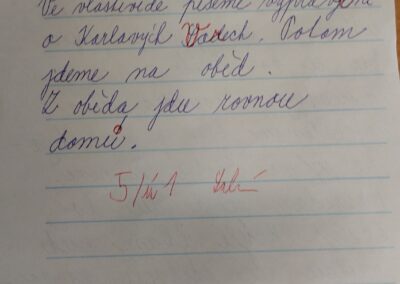 Ve vlastivědě píšeme
o Karlavých Varech. Potom
jdeme na oběd.
Z oběda jdu rovnou
domů.
5/ú 1